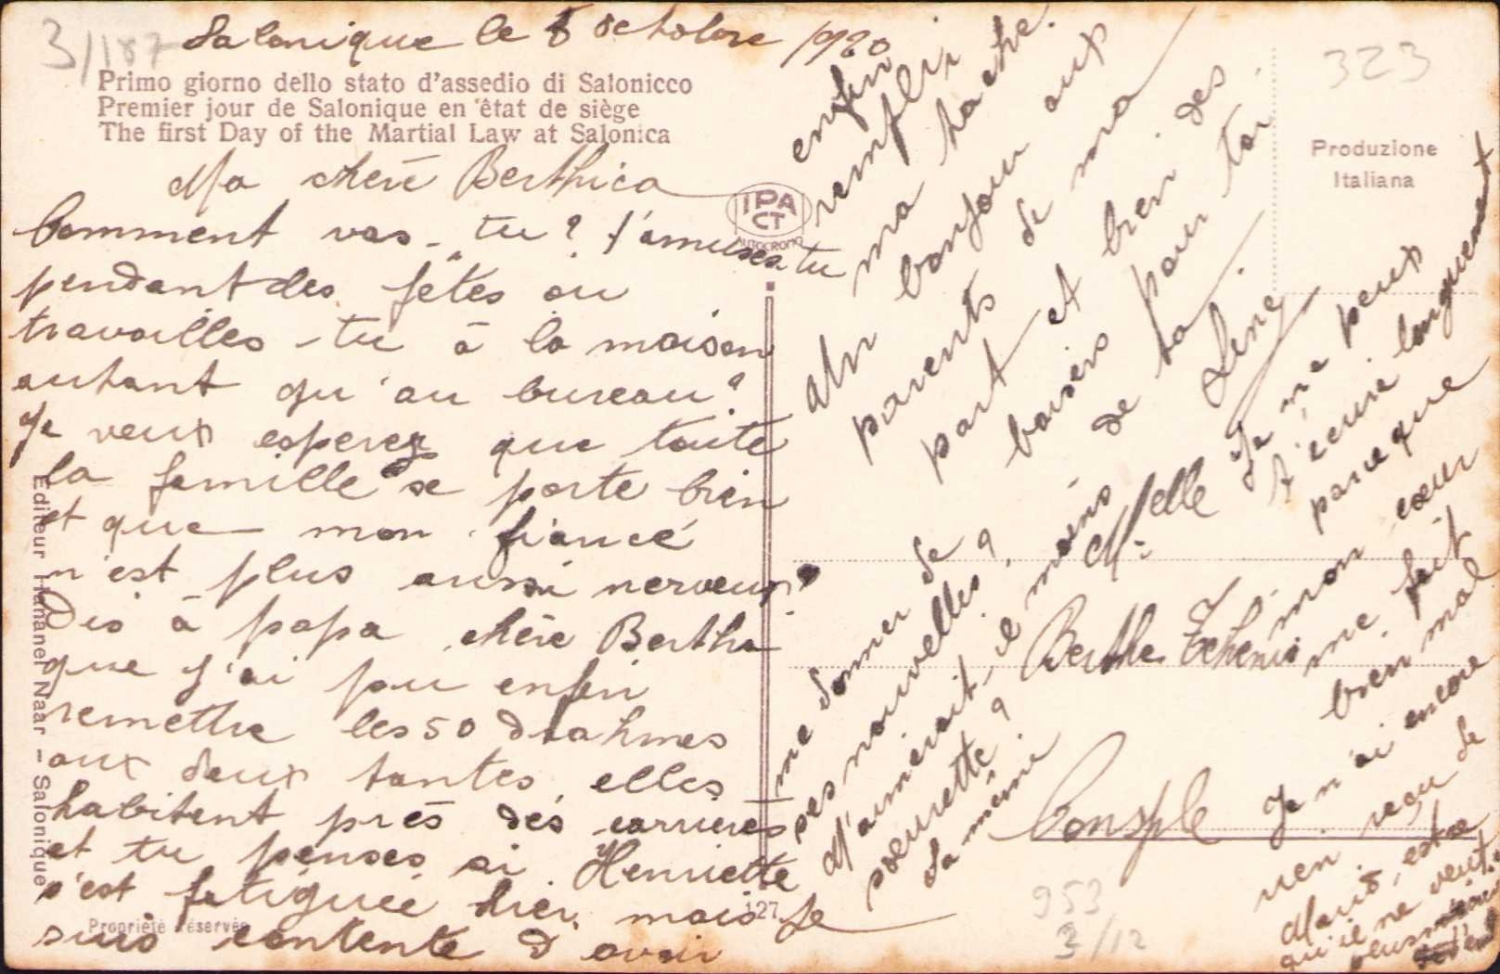 3/187
323
Salonique le 8 octobre 1920
Primo giorno dello stato d'assedio di Salonicco
Premier jour de Salonique en êtat de siège
The first Day of the Martial Law at Salonica
Produzione
Italiana
IPA
CT
AUTOCROMO
Ma chère Berthica
Comment vas-tu? t'amuses tu
pendant des fêtes ou
travailles-tu à la maison
autant qu'au bureau?
Je veux esperez que toute
la famille se porte bien
et que mon fiancé
n'est plus aussi nerveux.
Dis à papa chère Bertha
que j'ai pu enfin
remettre les 50 drahmes
aux deux tantes, elles
habitent près dés carrières
et tu penses si Henriette
s'est fatiguée hier, mais Je
suis contente d'avoir
enfin
remplir
ma tache.
Un bonjour aux
parents de ma
part et bien des
baisers pour toi
de ta
Line
Melle
Berthe
Consple
Je ne peux
t'écrire longuement
parce que
mon coeur
me fait
bien mal
Je n'ai encore
rien reçu de
Maris, est ce
qu'il ne veut
plus
me donner de
ses nouvelles?
M'aimerait-il moins
soeurette?
La même
Editeur Hananel Naar - Salonique
Propriété réservée
127
953
3/12